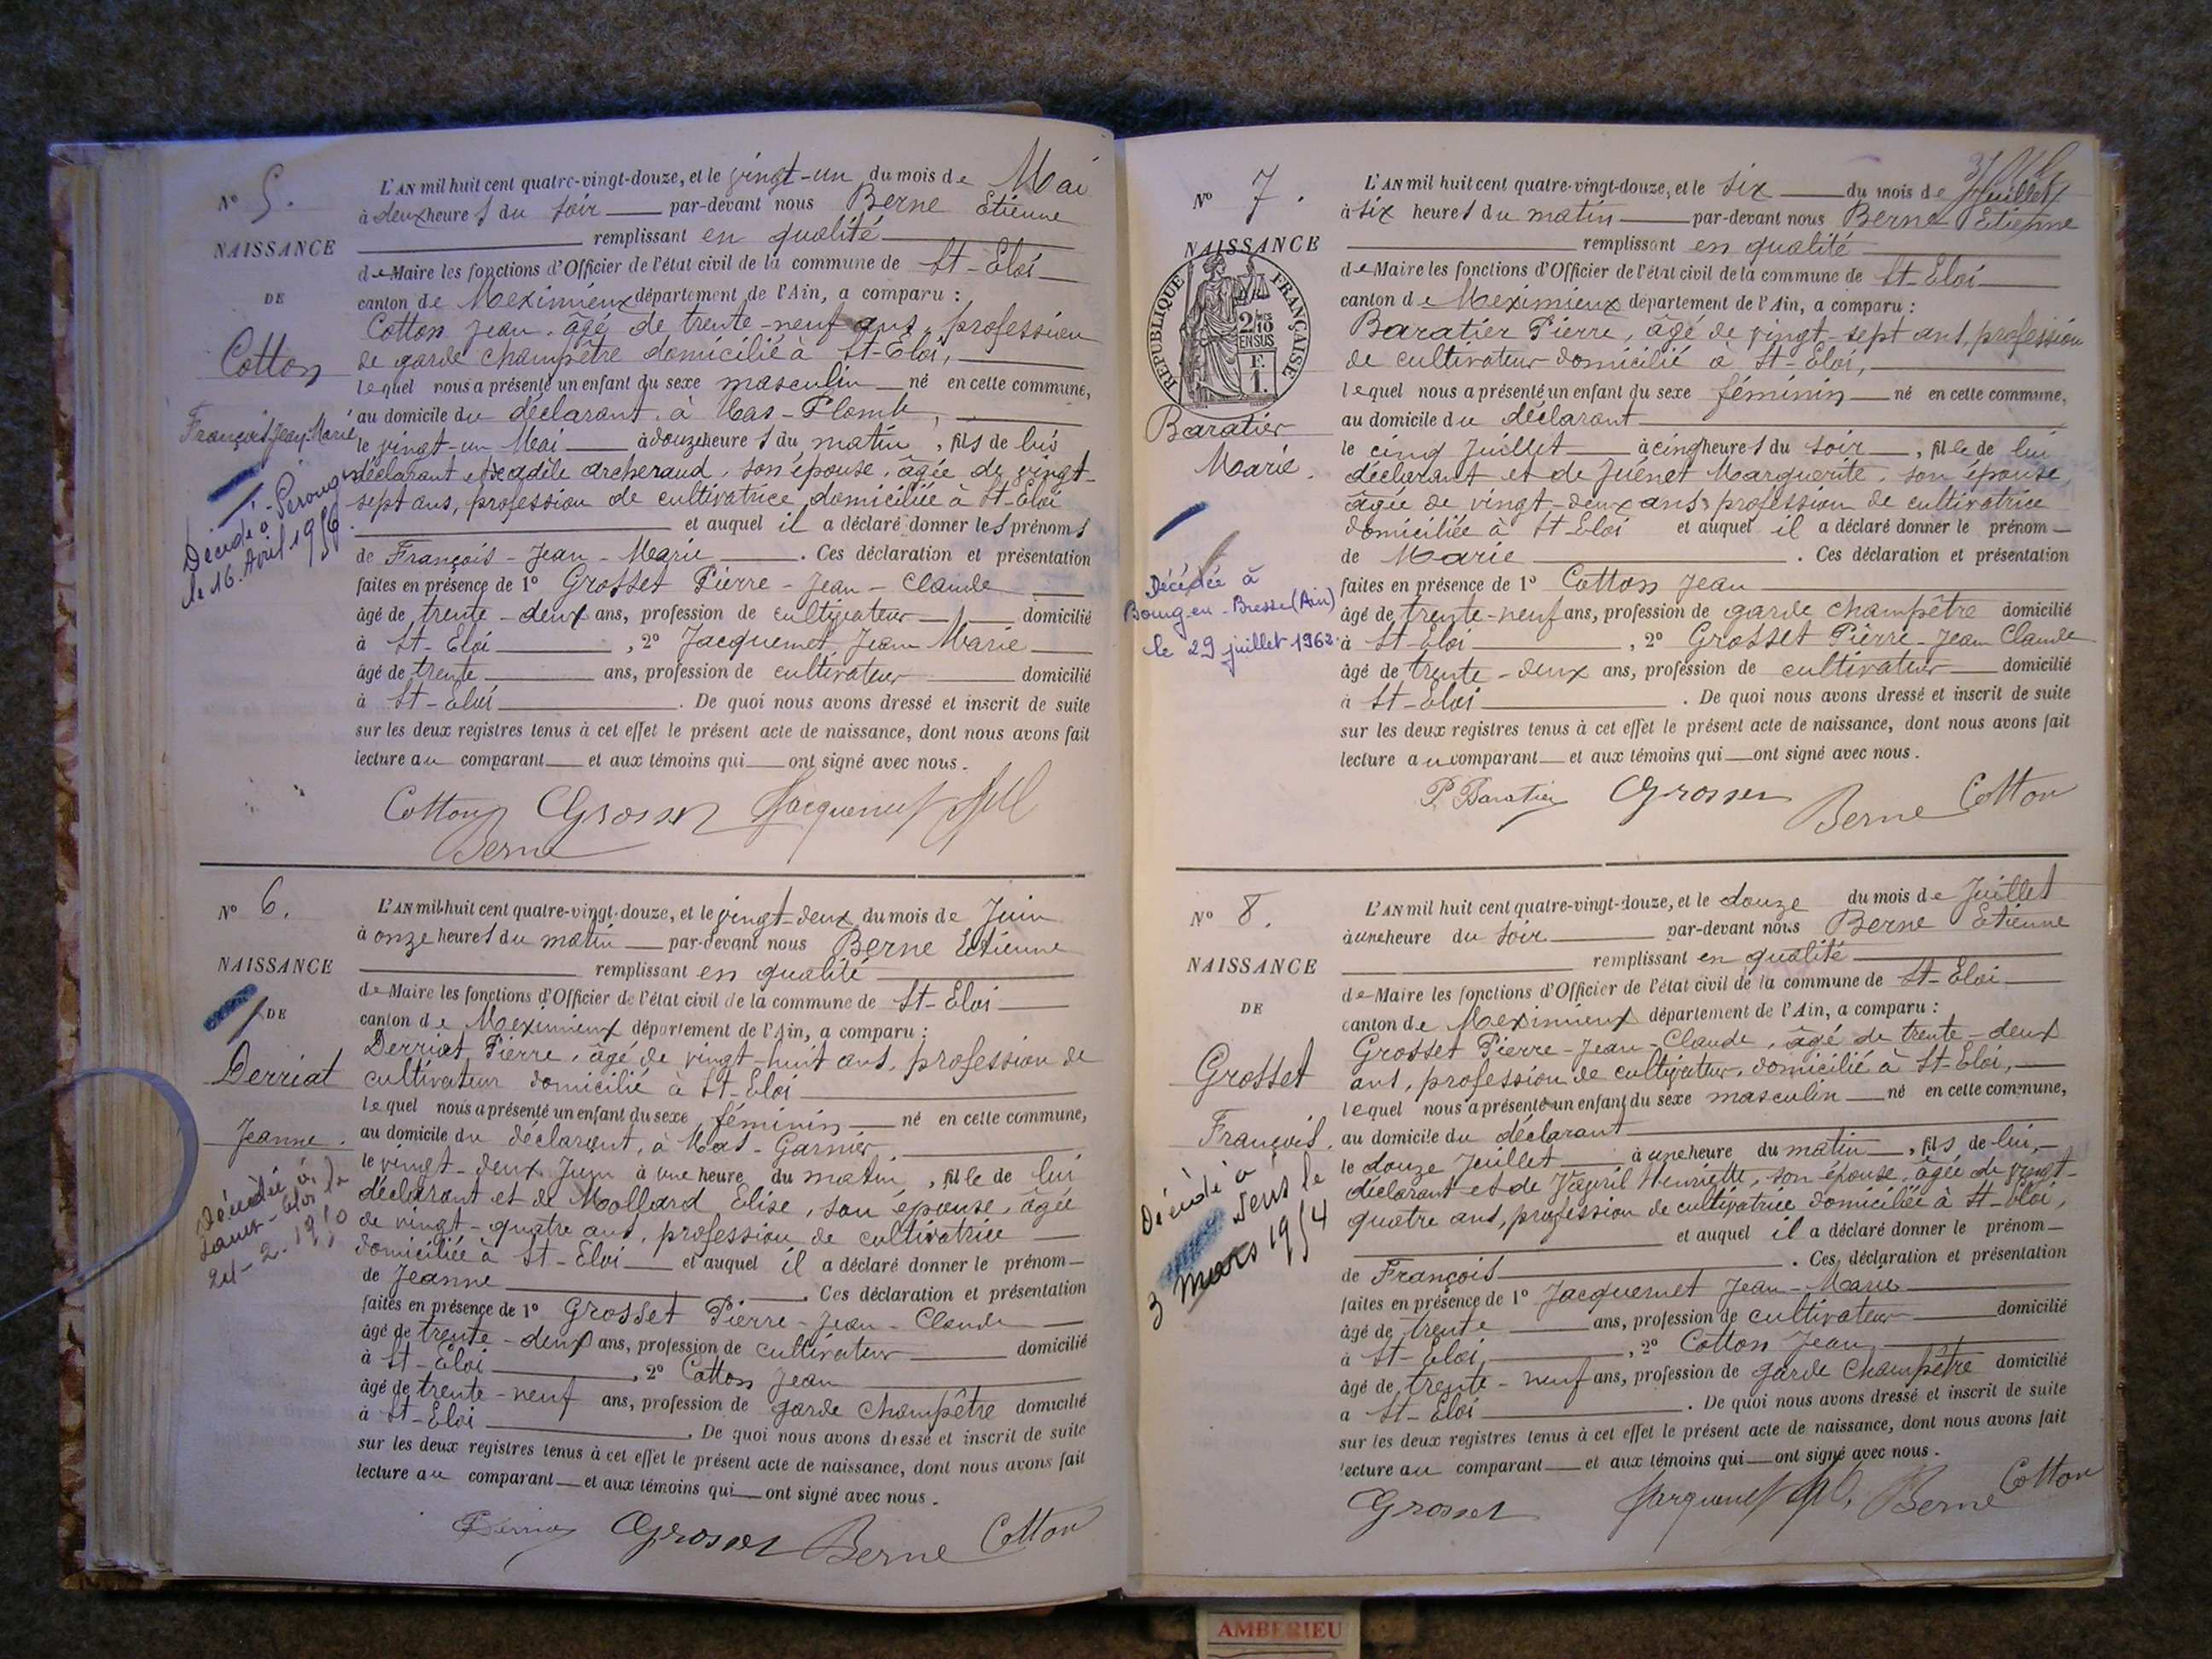 N° 5.
NAISSANCE
DE
Cotton
François Jean Marie
Décédé à Pérouges
le 16 Avril 1956
L'AN mil huit cent quatre-vingt-douze, et le vingt-un du mois de Mai
à deux heures du soir par-devant nous Berne Etienne
remplissant en qualité
de Maire les fonctions d'Officier de l'état civil de la commune de St-Eloi
canton de Meximieux département de l'Ain, a comparu :
Cotton Jean, âgé de trente-neuf ans, profession
de garde champêtre domicilié à St-Eloi,
lequel nous a présenté un enfant du sexe masculin né en cette commune,
au domicile du déclarant, à Mas-Plomb,
le vingt-un Mai à douze heures du matin, fils de lui
déclarant et de adèle archeraud, son épouse, âgée de vingt-
sept ans, profession de cultivatrice domiciliée à St-Eloi
et auquel il a déclaré donner les prénoms
de François-Jean-Marie. Ces déclaration et présentation
faites en présence de 1° Grosset Pierre-Jean-Claude
âgé de trente-deux ans, profession de cultivateur domicilié
à St-Eloi, 2° Jacquemet Jean Marie
âgé de trente ans, profession de cultivateur domicilié
à St-Eloi. De quoi nous avons dressé et inscrit de suite
sur les deux registres tenus à cet effet le présent acte de naissance, dont nous avons fait
lecture au comparant et aux témoins qui ont signé avec nous.
Cotton Grosset Jacquemet
Berne
N° 6.
NAISSANCE
DE
Derriat
Jeanne.
Décédée à
Saint-Eloi le
24-2-1950
L'AN mil huit cent quatre-vingt-douze, et le vingt-deux du mois de Juin
à onze heures du matin par-devant nous Berne Etienne
remplissant en qualité
de Maire les fonctions d'Officier de l'état civil de la commune de St-Eloi
canton de Meximieux département de l'Ain, a comparu :
Derriat Pierre, âgé de vingt-huit ans, profession de
cultivateur domicilié à St-Eloi
lequel nous a présenté un enfant du sexe féminin né en cette commune,
au domicile du déclarant, à Mas-Garnier
le vingt-deux Juin à une heure du matin, fille de lui
déclarant et de Mollard Elise, son épouse, âgée
de vingt-quatre ans, profession de cultivatrice
domiciliée à St-Eloi et auquel il a déclaré donner le prénom
de Jeanne. Ces déclaration et présentation
faites en présence de 1° Grosset Pierre-Jean-Claude
âgé de trente-deux ans, profession de cultivateur domicilié
à St-Eloi, 2° Cotton Jean
âgé de trente-neuf ans, profession de garde champêtre domicilié
à St-Eloi. De quoi nous avons dressé et inscrit de suite
sur les deux registres tenus à cet effet le présent acte de naissance, dont nous avons fait
lecture au comparant et aux témoins qui ont signé avec nous.
Grosset Berne Cotton
N° 7.
NAISSANCE
RÉPUBLIQUE FRANÇAISE
2/10 EN SUS
F. 1.
Baratier
Marie.
Décédée à
Bourg-en-Bresse (Ain)
le 29 juillet 1962.
L'AN mil huit cent quatre-vingt-douze, et le six du mois de Juillet
à six heures du matin par-devant nous Berne Etienne
remplissant en qualité
de Maire les fonctions d'Officier de l'état civil de la commune de St-Eloi
canton de Meximieux département de l'Ain, a comparu :
Baratier Pierre, âgé de vingt-sept ans, profession
de cultivateur domicilié à St-Eloi,
lequel nous a présenté un enfant du sexe féminin né en cette commune,
au domicile du déclarant
le cinq Juillet à cinq heures du soir, fille de lui
déclarant et de Juénet Marguerite, son épouse,
âgée de vingt-deux ans, profession de cultivatrice
domiciliée à St-Eloi et auquel il a déclaré donner le prénom
de Marie. Ces déclaration et présentation
faites en présence de 1° Cotton Jean
âgé de trente-neuf ans, profession de garde champêtre domicilié
à St-Eloi, 2° Grosset Pierre-Jean Claude
âgé de trente-deux ans, profession de cultivateur domicilié
à St-Eloi. De quoi nous avons dressé et inscrit de suite
sur les deux registres tenus à cet effet le présent acte de naissance, dont nous avons fait
lecture au comparant et aux témoins qui ont signé avec nous.
P. Baratier Grosset Berne Cotton
N° 8.
NAISSANCE
DE
Grosset
François.
Décédé à
Sens le
3 mars 1954
L'AN mil huit cent quatre-vingt-douze, et le douze du mois de Juillet
à une heure du soir par-devant nous Berne Etienne
remplissant en qualité
de Maire les fonctions d'Officier de l'état civil de la commune de St-Eloi
canton de Meximieux département de l'Ain, a comparu :
Grosset Pierre-Jean-Claude, âgé de trente-deux
ans, profession de cultivateur, domicilié à St-Eloi,
lequel nous a présenté un enfant du sexe masculin né en cette commune,
au domicile du déclarant
le douze Juillet à une heure du matin, fils de lui,
déclarant et de Henriette, son épouse, âgée de vingt-
quatre ans, profession de cultivatrice domiciliée à St-Eloi,
et auquel il a déclaré donner le prénom
de François. Ces déclaration et présentation
faites en présence de 1° Jacquemet Jean-Marie
âgé de trente ans, profession de cultivateur domicilié
à St-Eloi, 2° Cotton Jean
âgé de trente-neuf ans, profession de garde champêtre domicilié
à St-Eloi. De quoi nous avons dressé et inscrit de suite
sur les deux registres tenus à cet effet le présent acte de naissance, dont nous avons fait
lecture au comparant et aux témoins qui ont signé avec nous.
Grosset Jacquemet Berne Cotton
AMBERIEU